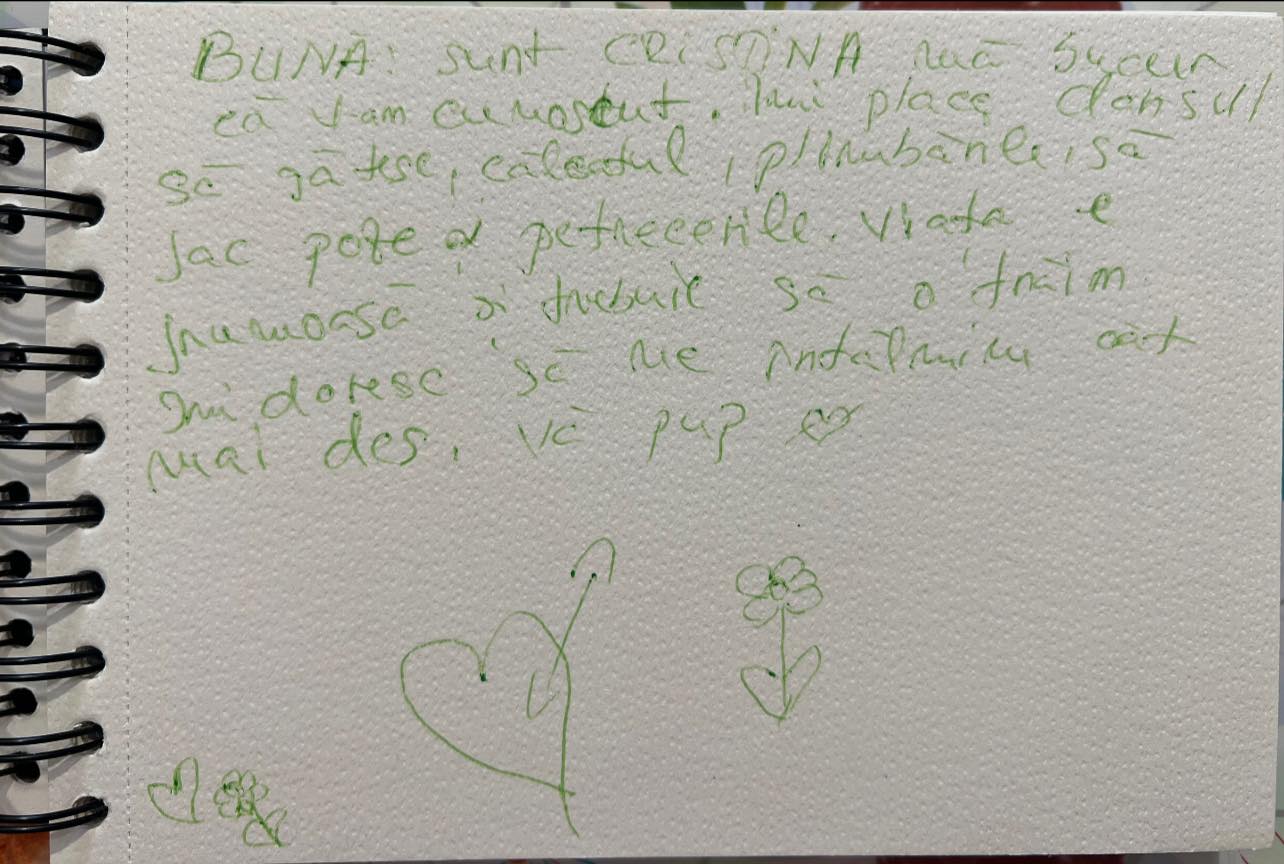 BUNĂ: sunt CRISTINA mă bucur
că v-am cunoscut. Îmi place dansul,
să gătesc, călcatul, plimbările, să
fac poze și petrecerile. Viața e
frumoasă și trebuie să o trăim.
Îmi doresc să ne întâlnim cât
mai des. Vă pup